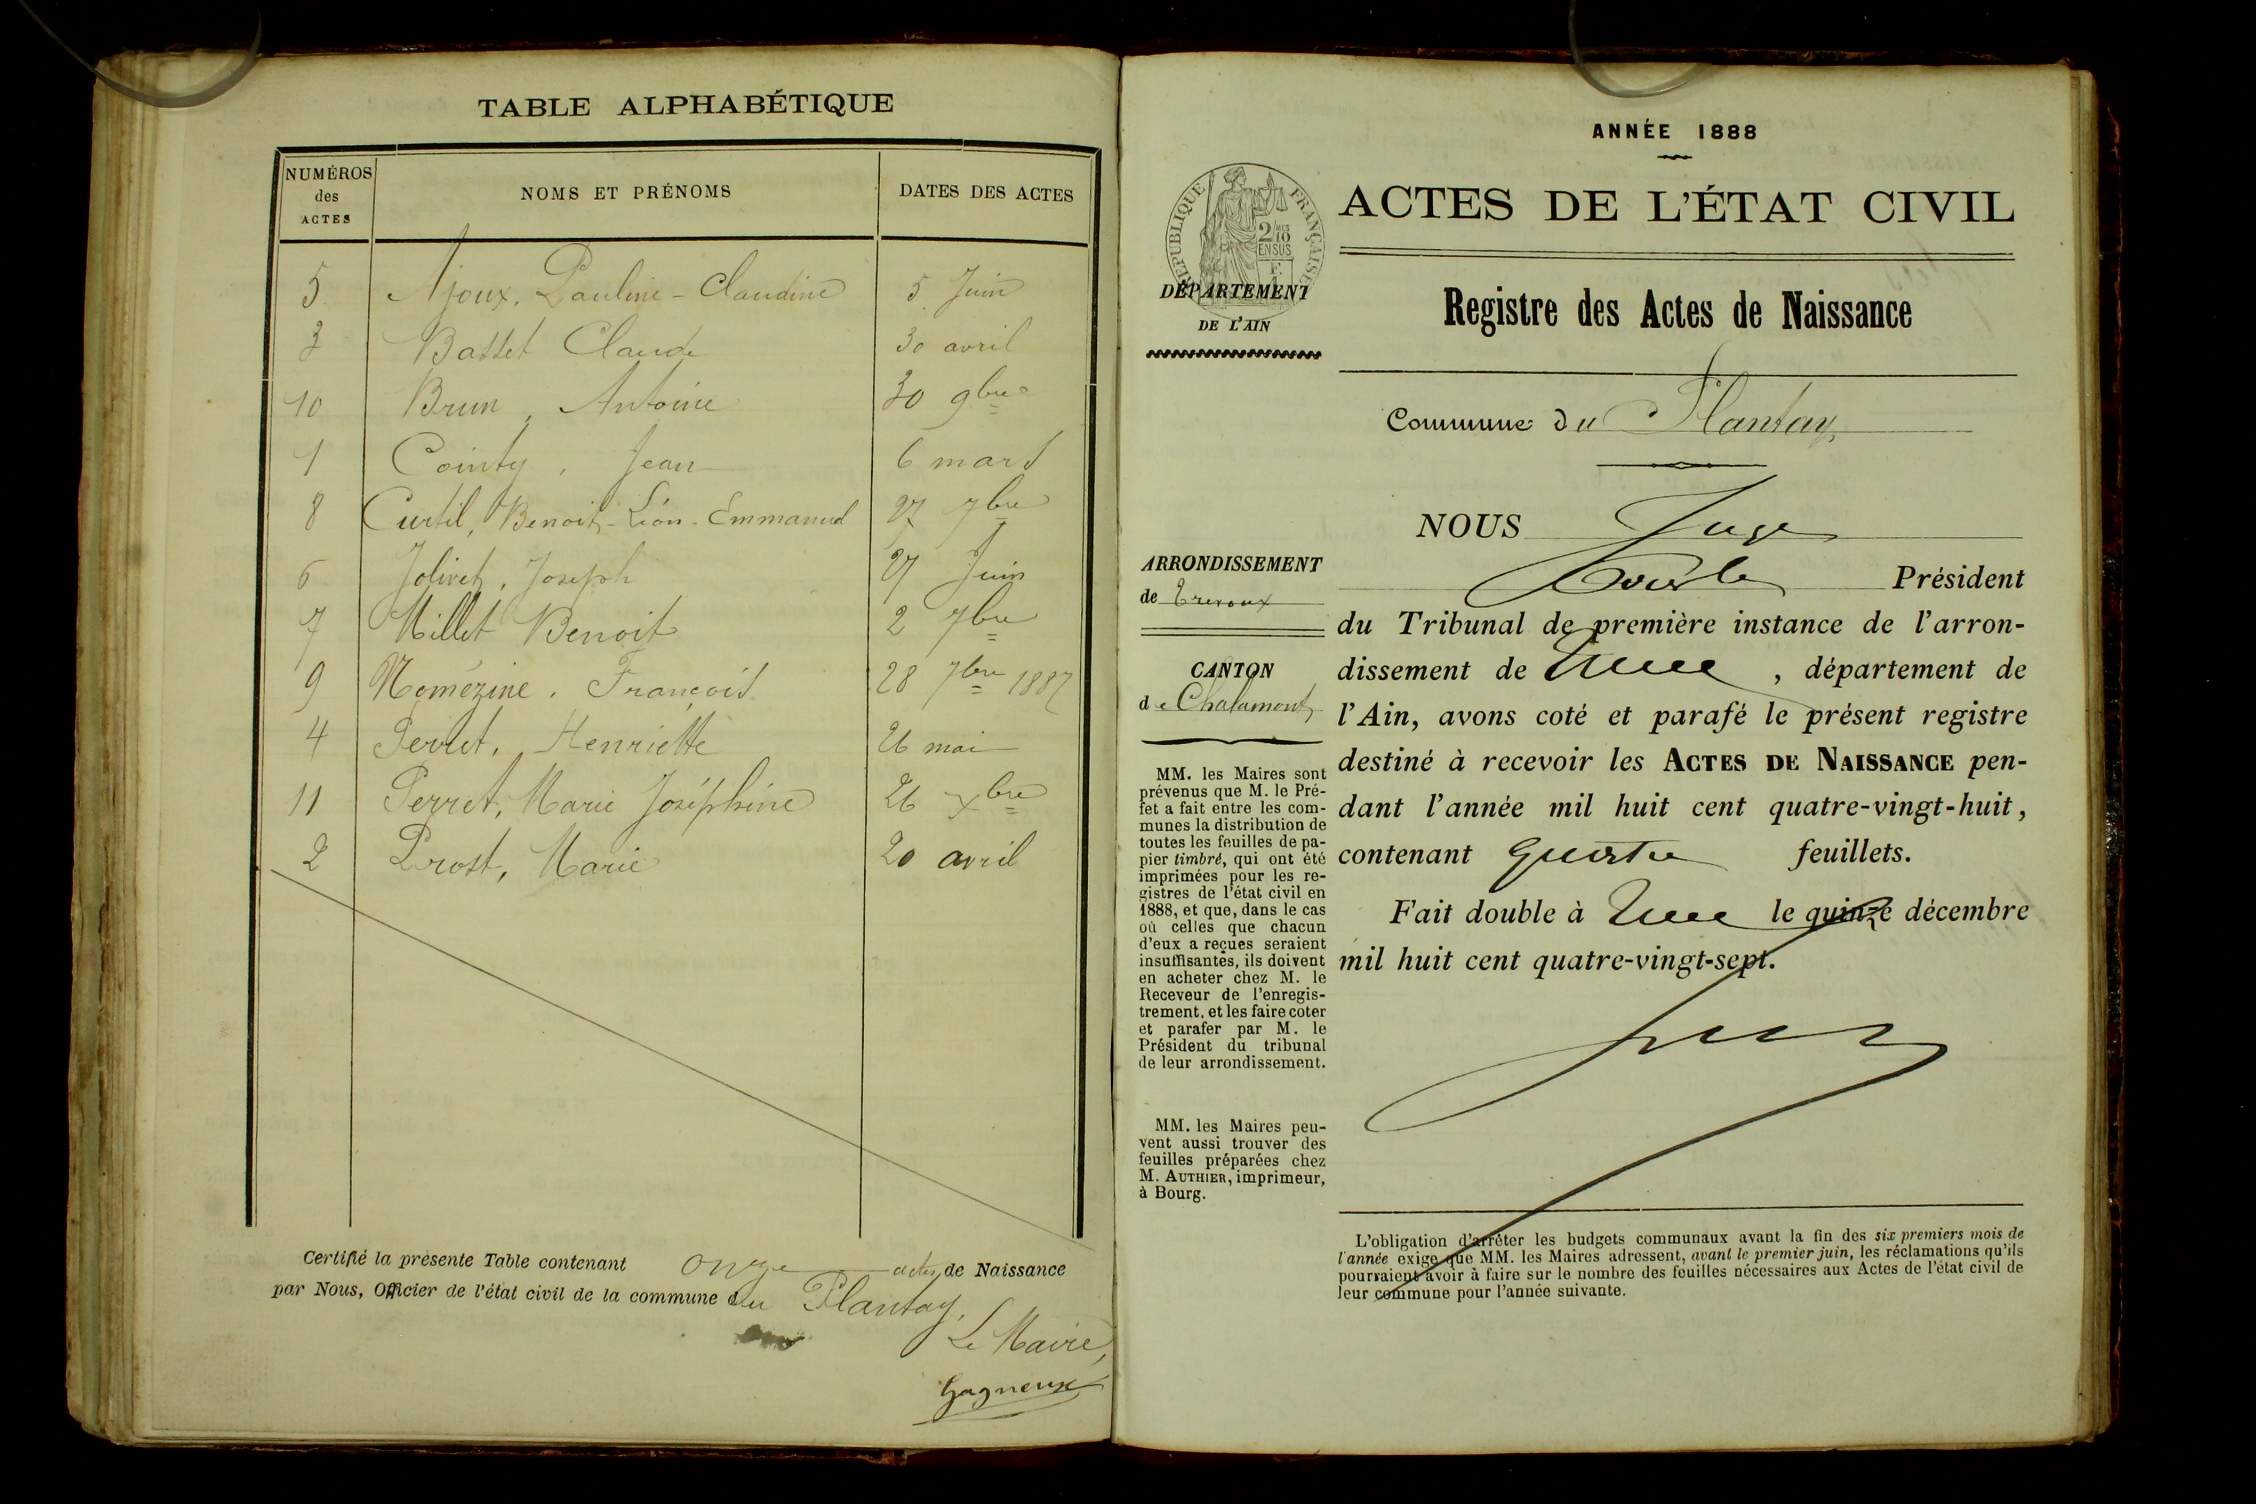 TABLE ALPHABÉTIQUE
NUMÉROS des ACTES
NOMS ET PRÉNOMS
DATES DES ACTES
5 Ajoux, Pauline-Claudine 5 Juin
3 Basset Claude 30 avril
10 Brun, Antoine 30 9bre
1 Cointy, Jean 6 mars
8 Curtil, Benoit-Léon-Emmanuel 27 7bre
6 Jolivet, Joseph 27 Juin
7 Millet Benoit 2 7bre
9 Nomézine, François 28 7bre 1887
4 Perret, Henriette 26 mai
11 Perret, Marie Joséphine 26 xbre
2 Prost, Marie 20 avril
Certifié la présente Table contenant onze actes de Naissance
par Nous, Officier de l'état civil de la commune du Plantay,
Le Maire,
Gagneux
ANNÉE 1888
RÉPUBLIQUE FRANÇAISE
2/10
EN SUS
DÉPARTEMENT
DE L'AIN
ACTES DE L'ÉTAT CIVIL
Registre des Actes de Naissance
Commune du Plantay
ARRONDISSEMENT
de Trevoux
CANTON
de Chalamont
MM. les Maires sont
prévenus que M. le Pré-
fet a fait entre les com-
munes la distribution de
toutes les feuilles de pa-
pier timbré, qui ont été
imprimées pour les re-
gistres de l'état civil en
1888, et que, dans le cas
où celles que chacun
d'eux a reçues seraient
insuffisantes, ils doivent
en acheter chez M. le
Receveur de l'enregis-
trement, et les faire coter
et parafer par M. le
Président du tribunal
de leur arrondissement.
MM. les Maires peu-
vent aussi trouver des
feuilles préparées chez
M. AUTHIER, imprimeur,
à Bourg.
NOUS Juge
Président
du Tribunal de première instance de l'arron-
dissement de , département de
l'Ain, avons coté et parafé le présent registre
destiné à recevoir les ACTES DE NAISSANCE pen-
dant l'année mil huit cent quatre-vingt-huit,
contenant quatre feuillets.
Fait double à le quinze décembre
mil huit cent quatre-vingt-sept.
L'obligation d'arrêter les budgets communaux avant la fin des six premiers mois de
l'année exige que MM. les Maires adressent, avant le premier juin, les réclamations qu'ils
pourraient avoir à faire sur le nombre des feuilles nécessaires aux Actes de l'état civil de
leur commune pour l'année suivante.